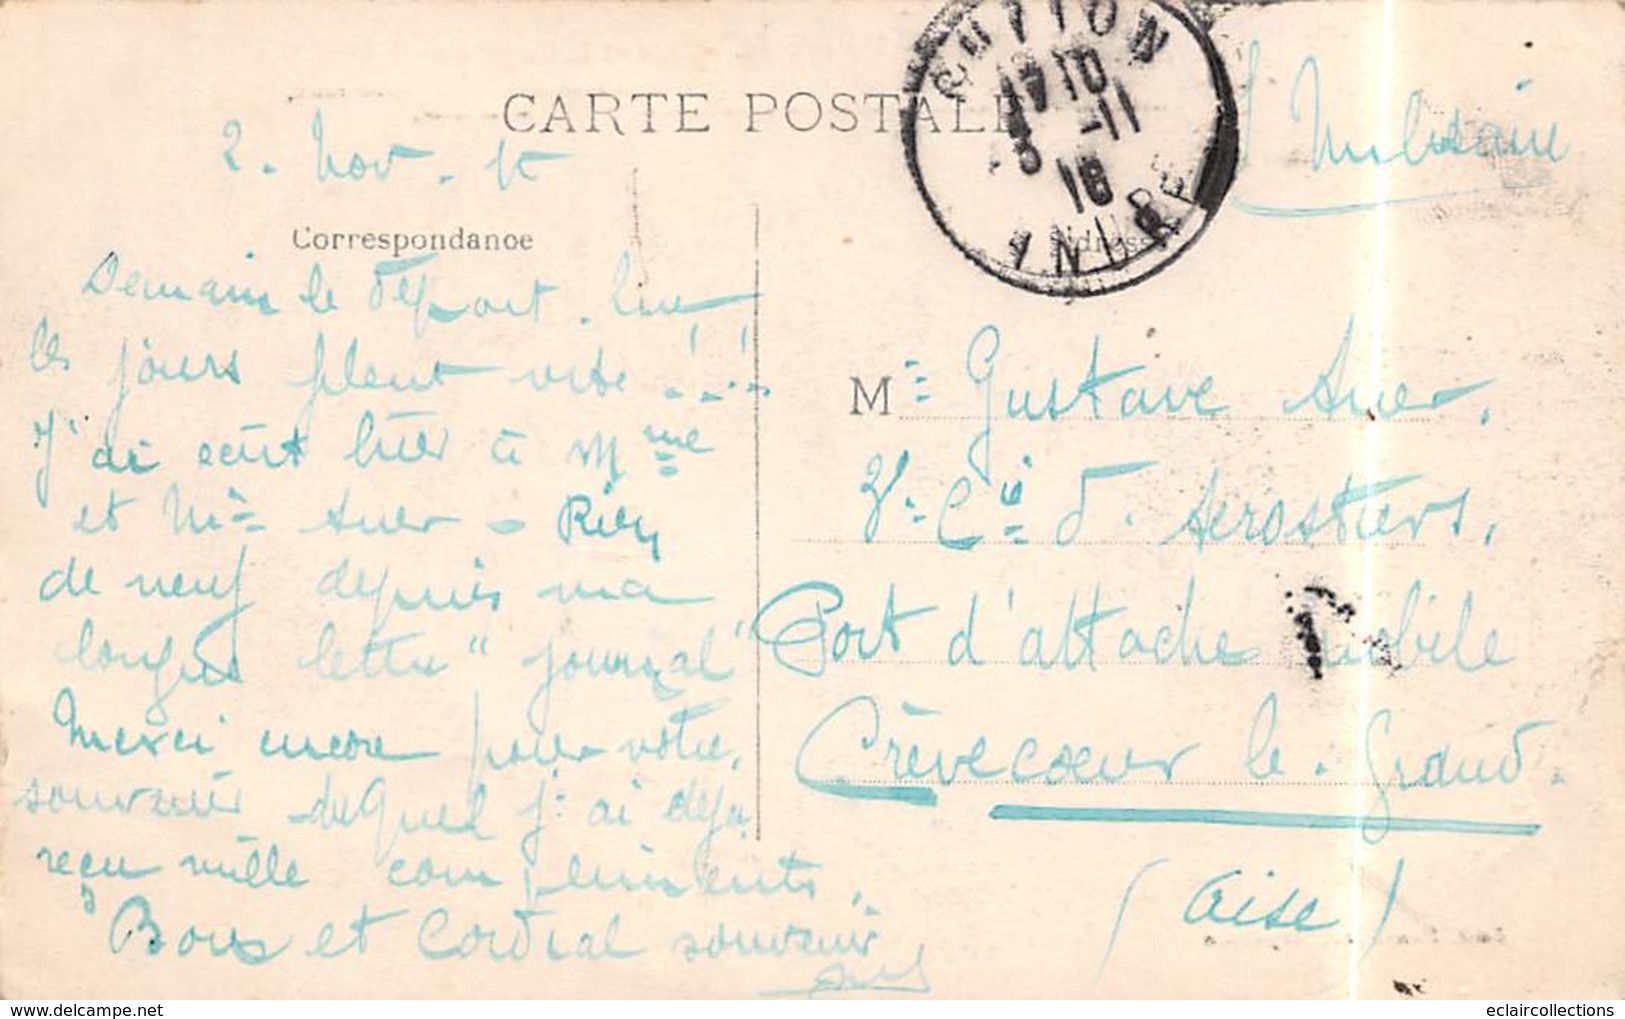 CARTE POSTALE
2. Nov. 15
Militaire
Correspondance
Adresse
CUTTON
5 -11
ANURE
Demain le départ. Que
les jours filent vite !..!
J'ai écrit hier à Mme
et Mr Auer - Rien
de neuf depuis ma
longue lettre "journal"
Merci encore pour votre
souvenir duquel j'ai déjà
reçu mille compliments.
Bons et cordial souvenir
M Gustave Auer.
Cie d'Aerostiers.
Port d'attache mobile
Crèvecoeur le Grand.
(Oise)
eclaircollections